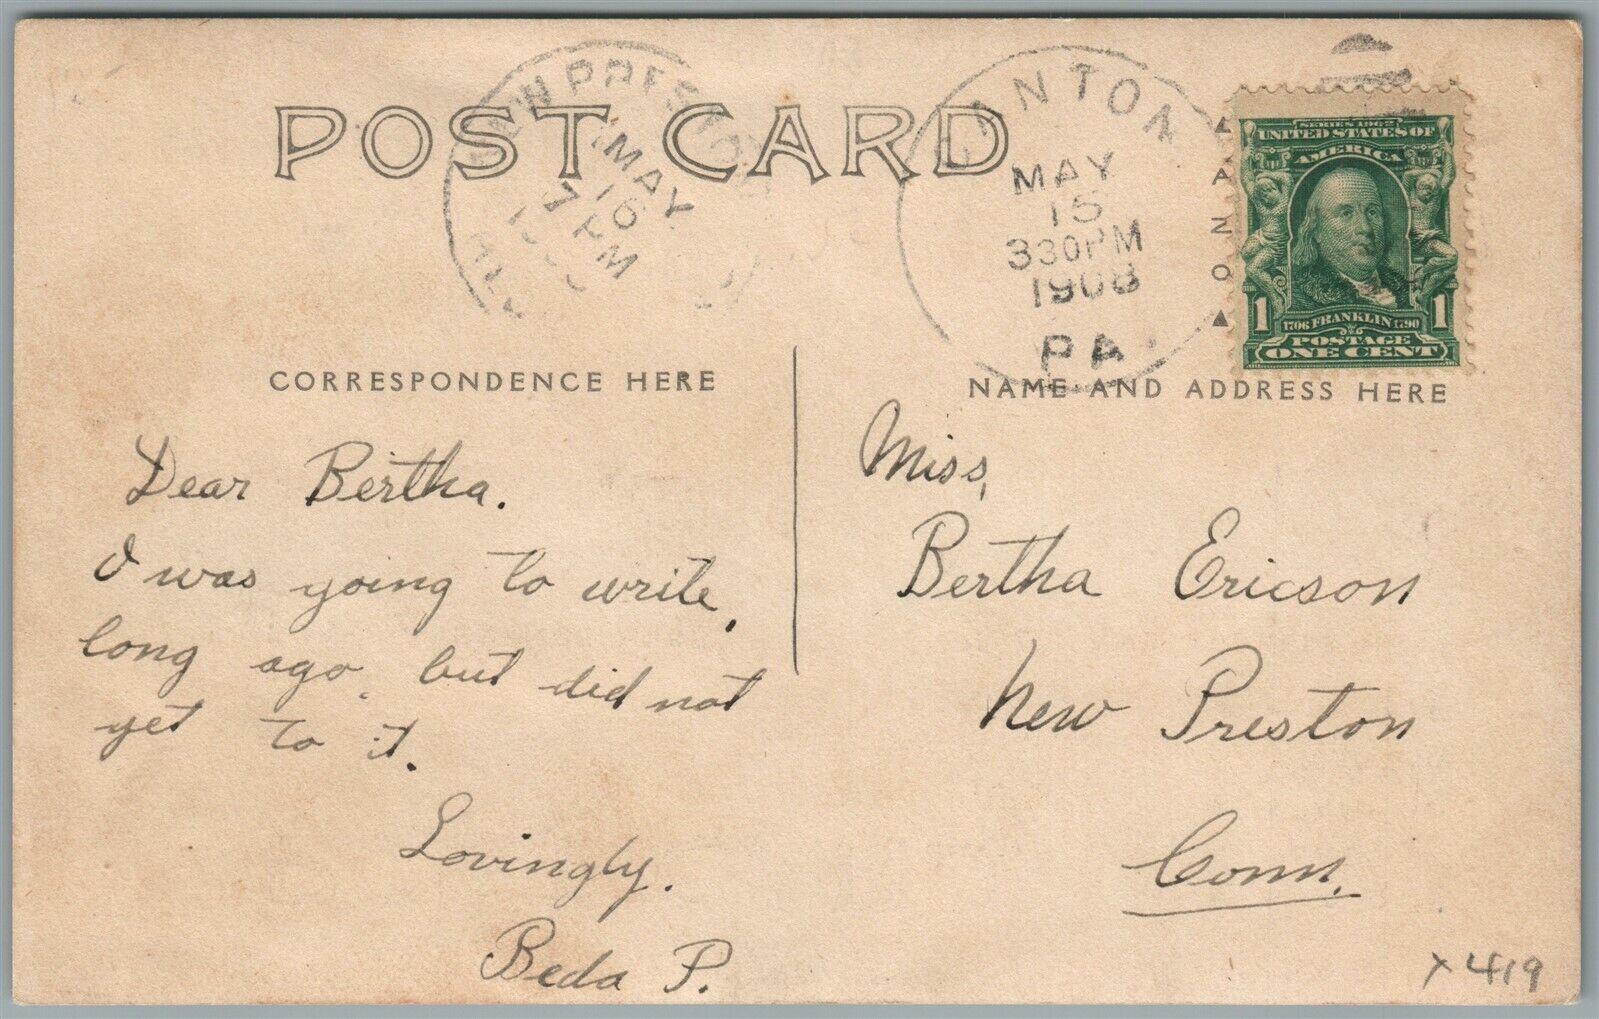 POST CARD
NEW PRESTON
MAY
16
7 PM
ANTON
MAY
15
330PM
1908
PA.
AZNO
SERIES 1902
UNITED STATES OF
AMERICA
1 1
1706 FRANKLIN 1790
POSTAGE
ONE CENT
CORRESPONDENCE HERE
NAME AND ADDRESS HERE
Dear Bertha.
I was going to write,
long ago, but did not
yet to it.
Lovingly.
Beda P.
Miss,
Bertha Ericson
New Preston
Conn.
x419